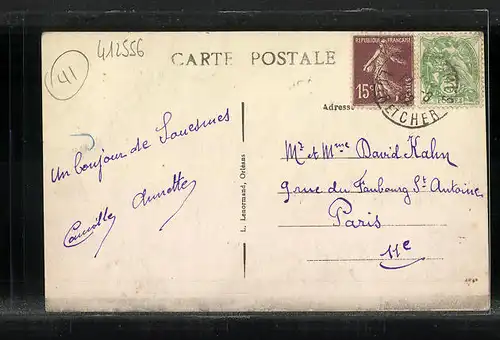 412556
41
CARTE POSTALE
REPUBLIQUE FRANÇAISE
15c
ET CHER
Adresse
Un bonjour de Souesmes
Camille Annette
L. Lenormand, Orléans
Mr et Mme David Kahn
9 rue du Faubourg St Antoine
Paris
11e